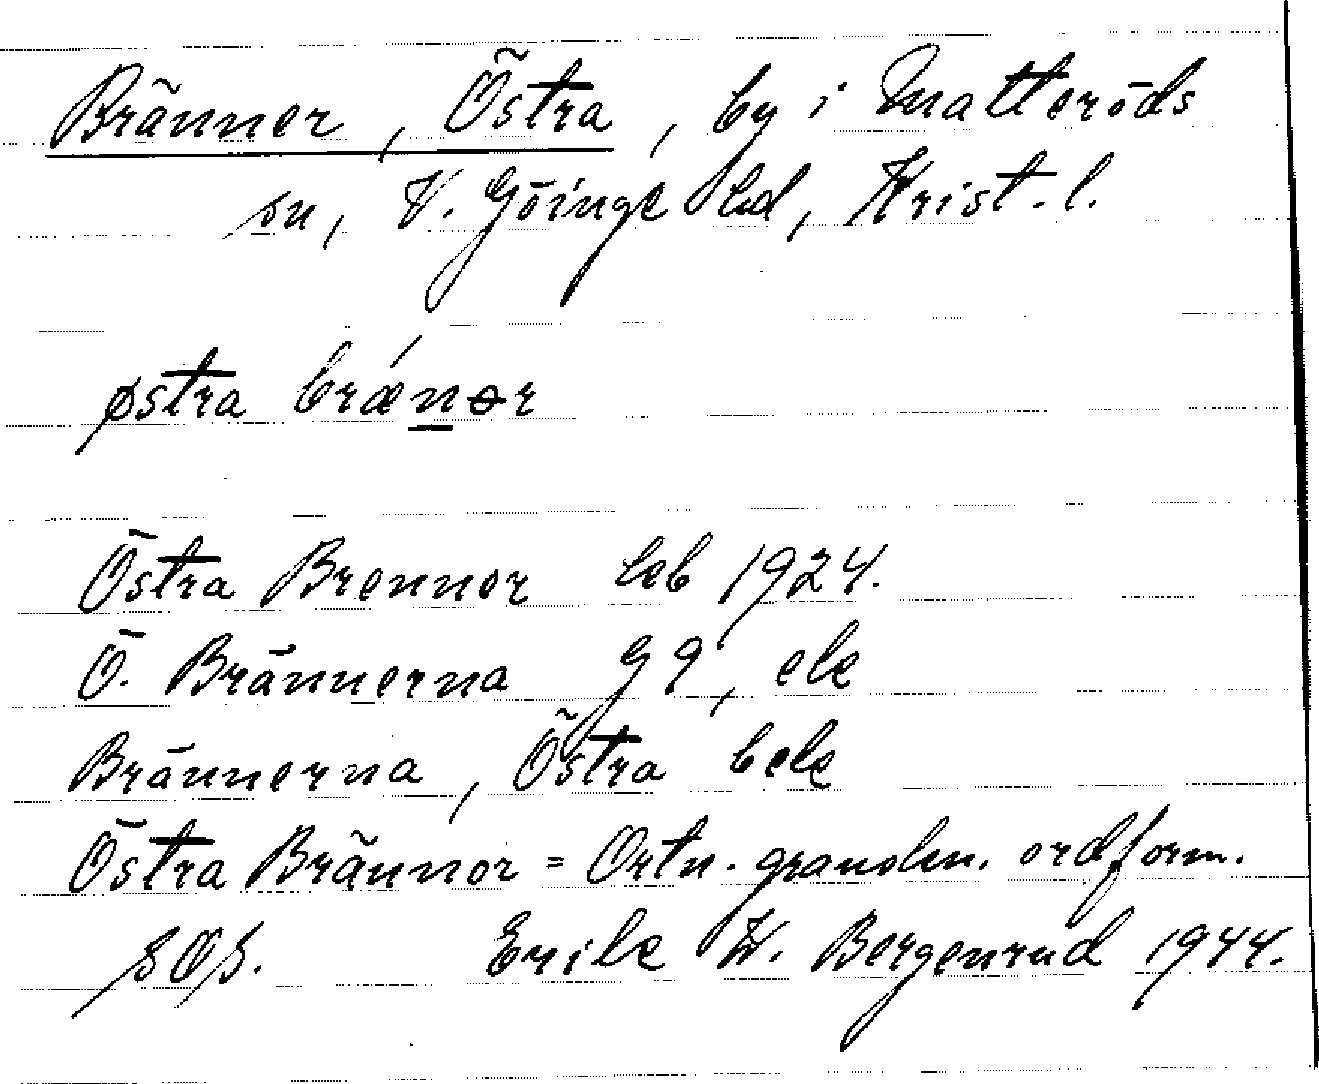 Bränner, Östra, by i Matteröds
sn, V. Göinge hd, Krist. l.
østra brǽnɵr
Östra Brennor leb 1924.
Ö. Brännerna GG, ek
Brännerna, Östra bek
Östra Brännor = Ortn. granskn. ordform.
SOS. Erik W. Bergenrud 1944.